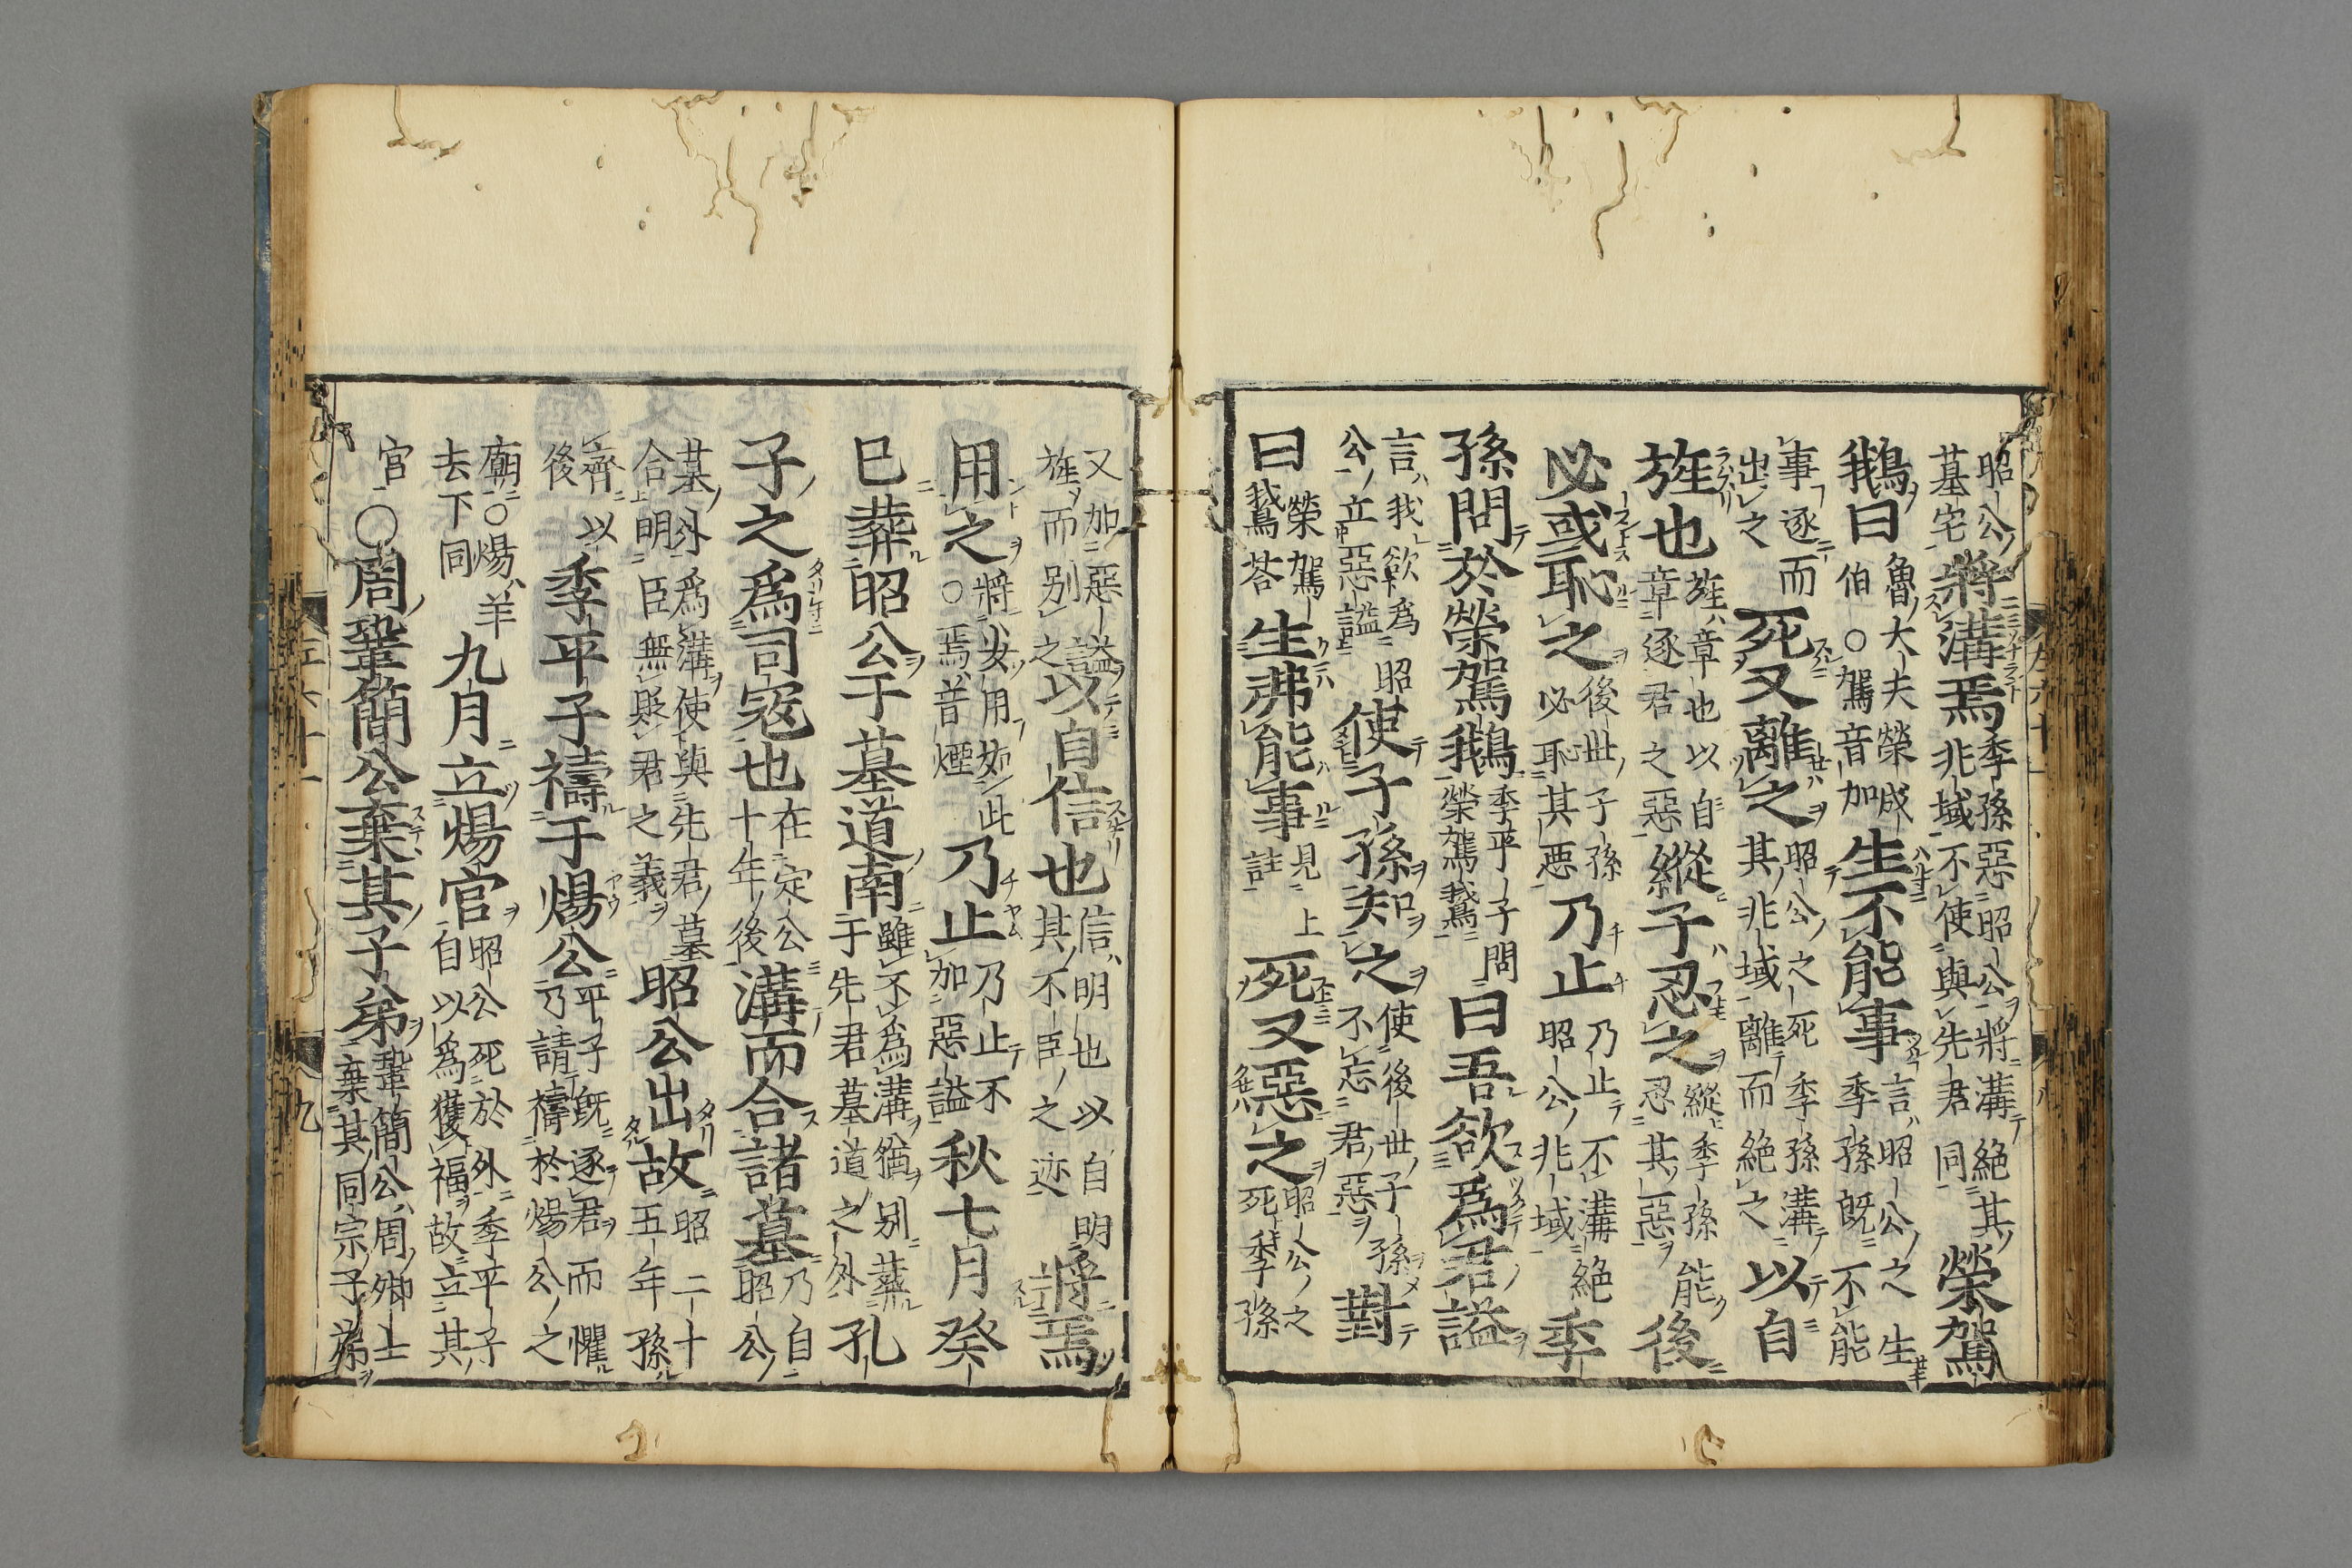 昭公墓宅將溝焉季孫惡昭公將溝絶其兆域不使與先君同榮駕
鵝曰魯大夫榮成伯○駕音加生不能事言昭公之生季孫既不能
事逐而出之死又離之昭公之死季孫溝其兆域離而絶之以自
旌也旌章也以自章逐君之惡縱子忍之縱季孫能忍其惡後
必或恥之後世子孫必恥其惡乃止乃止不溝絶昭公兆域季
孫問於榮駕鵝季平子問榮駕鵞曰吾欲爲君謚
言我欲爲昭公立惡謚使子孫知之使後世子孫不忘君惡對
曰榮駕鵞荅生弗能事見上註死又惡之昭公之死季孫
又加惡謚旌而别之以自信也信明也以自明其不臣之迹將焉
用之將安用如此○焉音煙乃止乃止不加惡謚秋七月癸
巳葬昭公于墓道南雖不爲溝猶别葬于先君墓道之外孔
子之爲司寇也在定公十年後溝而合諸墓乃自昭公
墓外爲溝使與先君墓合明臣無貶君之義昭公出故昭二十五年孫
齊以後季平子禱于煬公平子既逐君而懼乃請禱於煬公之
廟○煬羊去下同九月立煬官昭公死於外季平子自以爲獲福故立其
官○周鞏簡公棄其子弟鞏簡公周卿士棄其同宗子弟